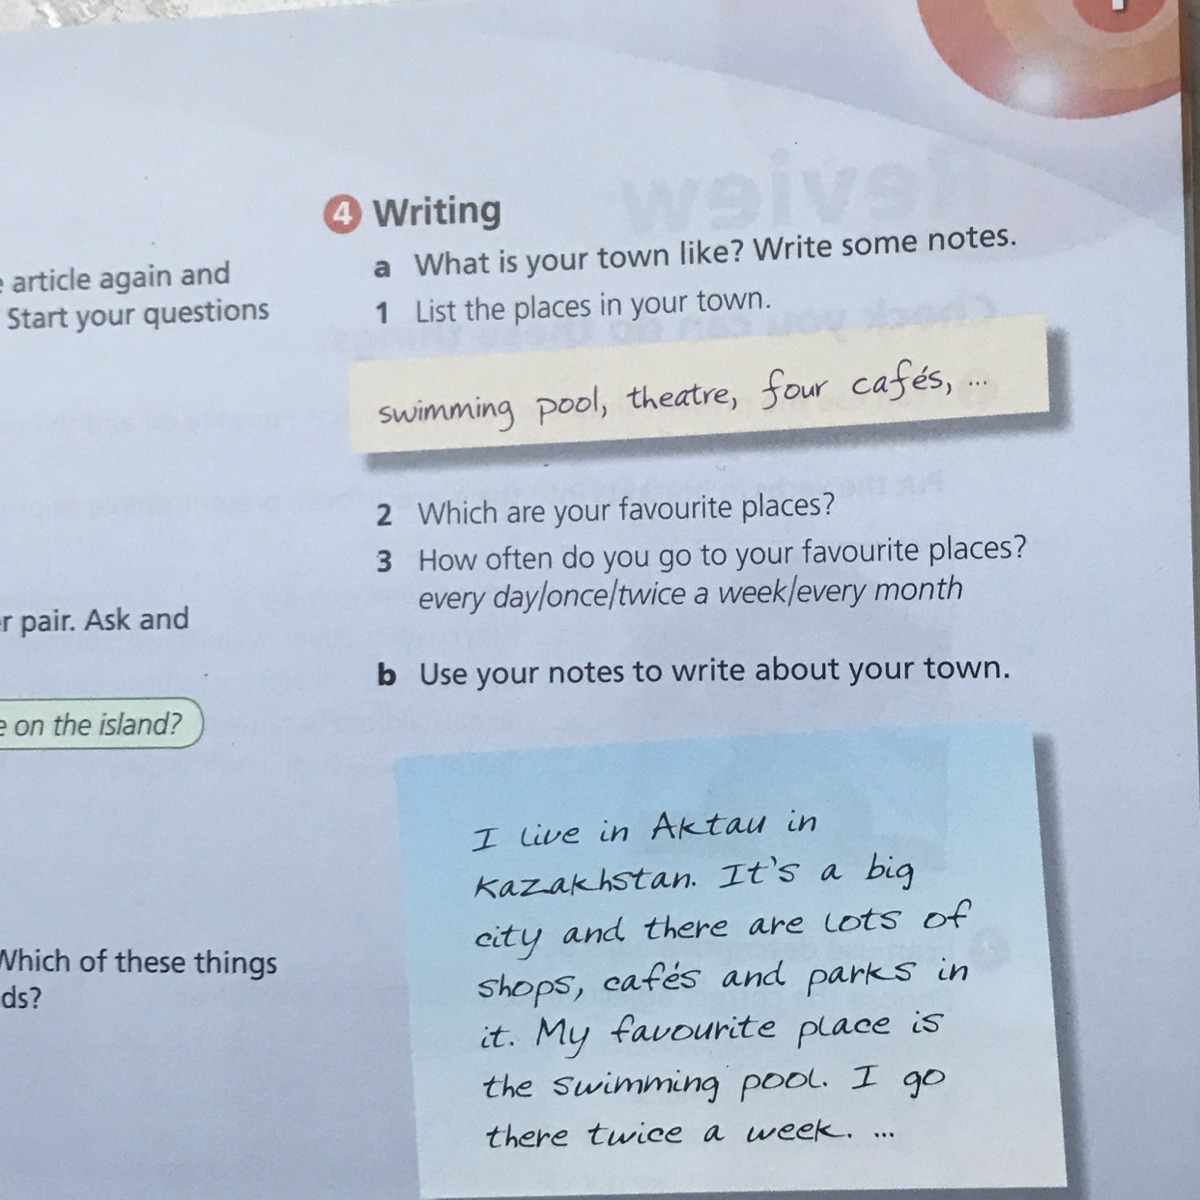 article again and
Start your questions
pair. Ask and
on the island?
Which of these things
4 Writing
a What is your town like? Write some notes.
1 List the places in your town.
swimming pool, theatre, four cafés, ...
2 Which are your favourite places?
3 How often do you go to your favourite places?
every day/once/twice a week/every month
b Use your notes to write about your town.
I live in Aktau in
Kazakhstan. It's a big
city and there are lots of
shops, cafés and parks in
it. My favourite place is
the swimming pool. I go
there twice a week. ...